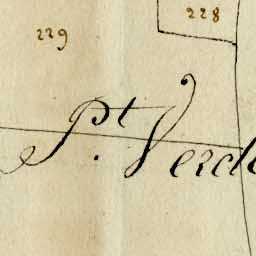 228
229
Pt Verd